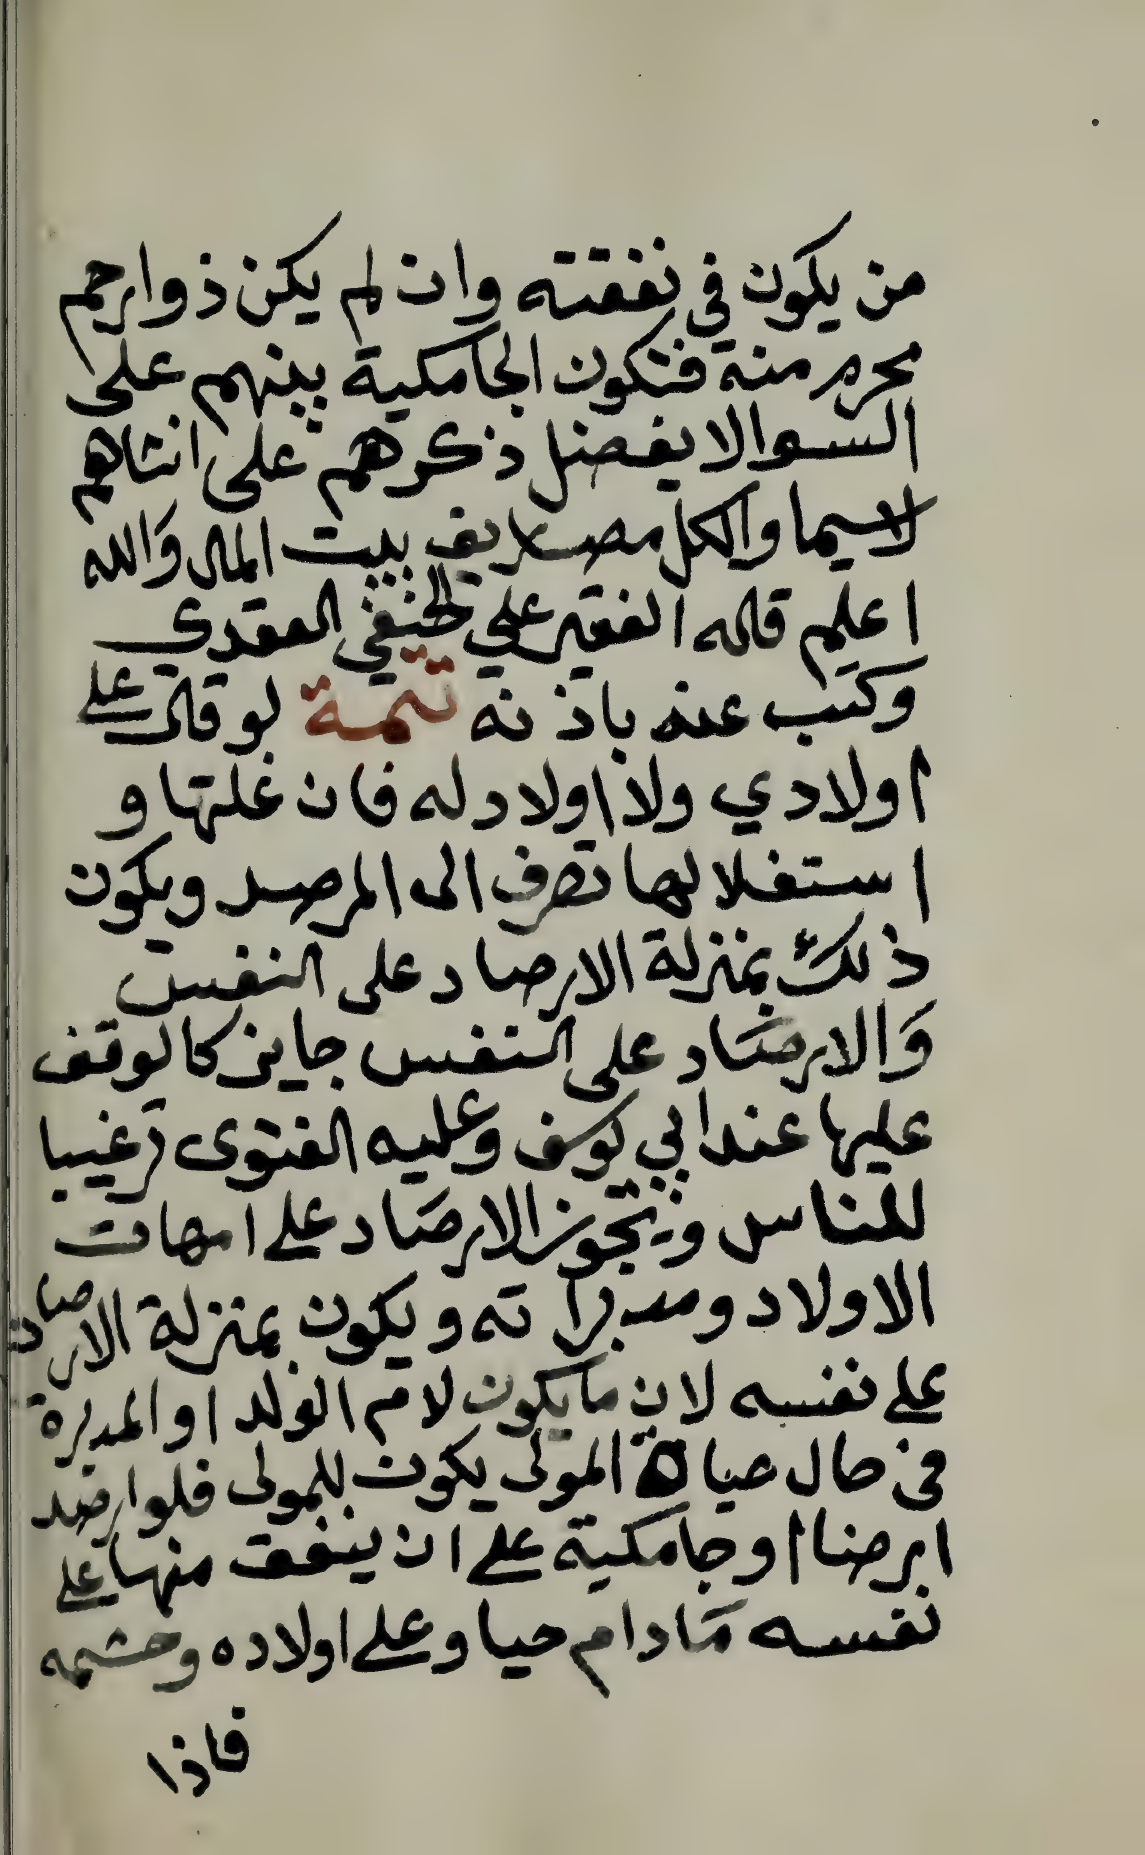 من يكون في نفقته وان لم يكن ذوارحم
محرم منه فتكون الجامكية بينهم على
السوالا يفضل ذكرهم على انثاهم
لاسيما والكل مصاريف بيت المال والله
اعلم قاله الفقير علي الحنفي العقدي
وكتب عنه باذنه تتمة لو قال على
اولادي ولا اولاد له فان غلتها و
استغلالها تصرف الى المرصد ويكون
ذلك بمنزلة الارصاد على النفس
والارصاد على النفس جايز كالوقف
عليها عند ابي يوسف وعليه الفتوى ترغيبا
للناس ويجوز الارصاد على امهات
الاولاد ومدبراته ويكون بمنزلة الارصاد
على نفسه لان ما يكون لام الولد او المدبرة
في حال حياة المولى يكون للمولى فلو ارصد
ارضا او جامكية على ان ينفق منها على
نفسه مادام حيا وعلى اولاده وحشمه
فاذا